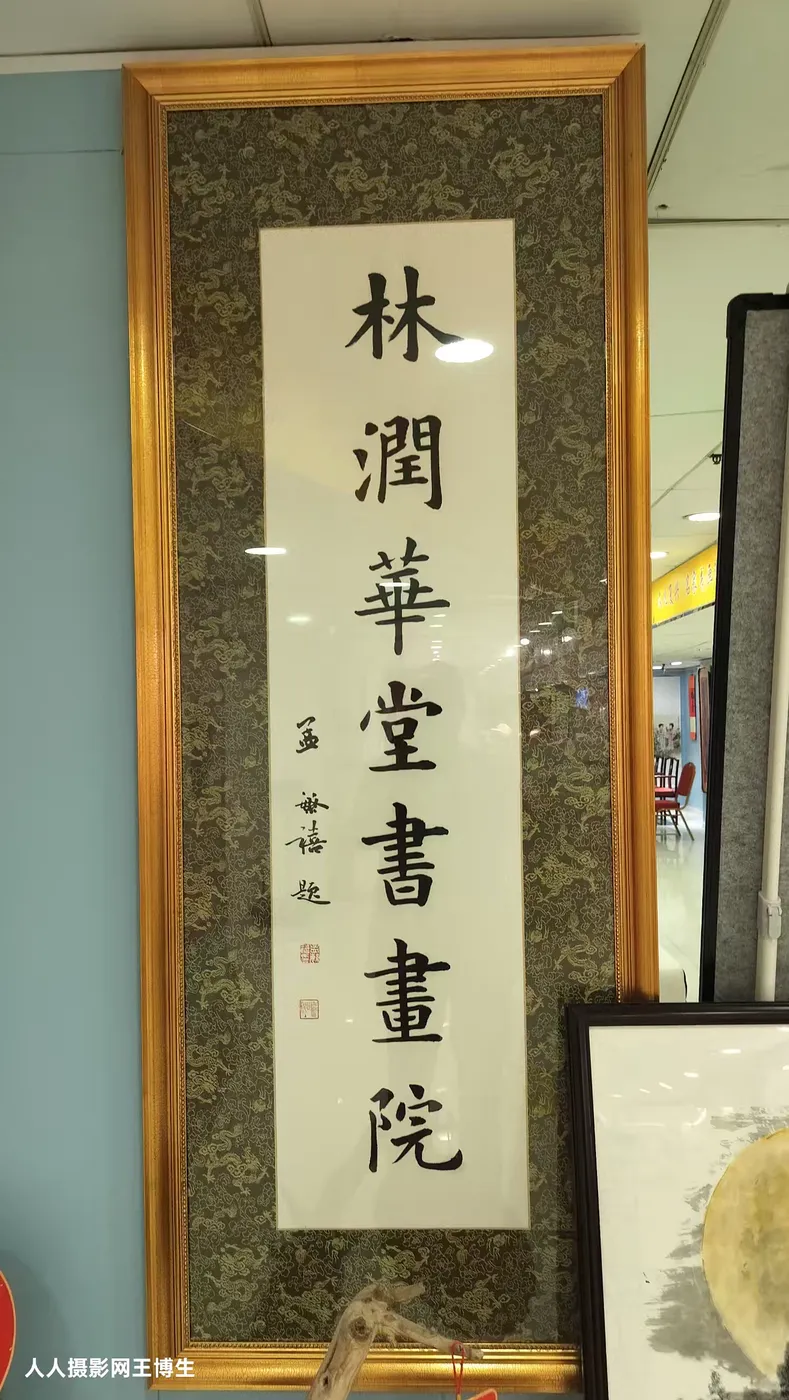 林潤華堂書畫院
孟繁禧題
人人摄影网王博生